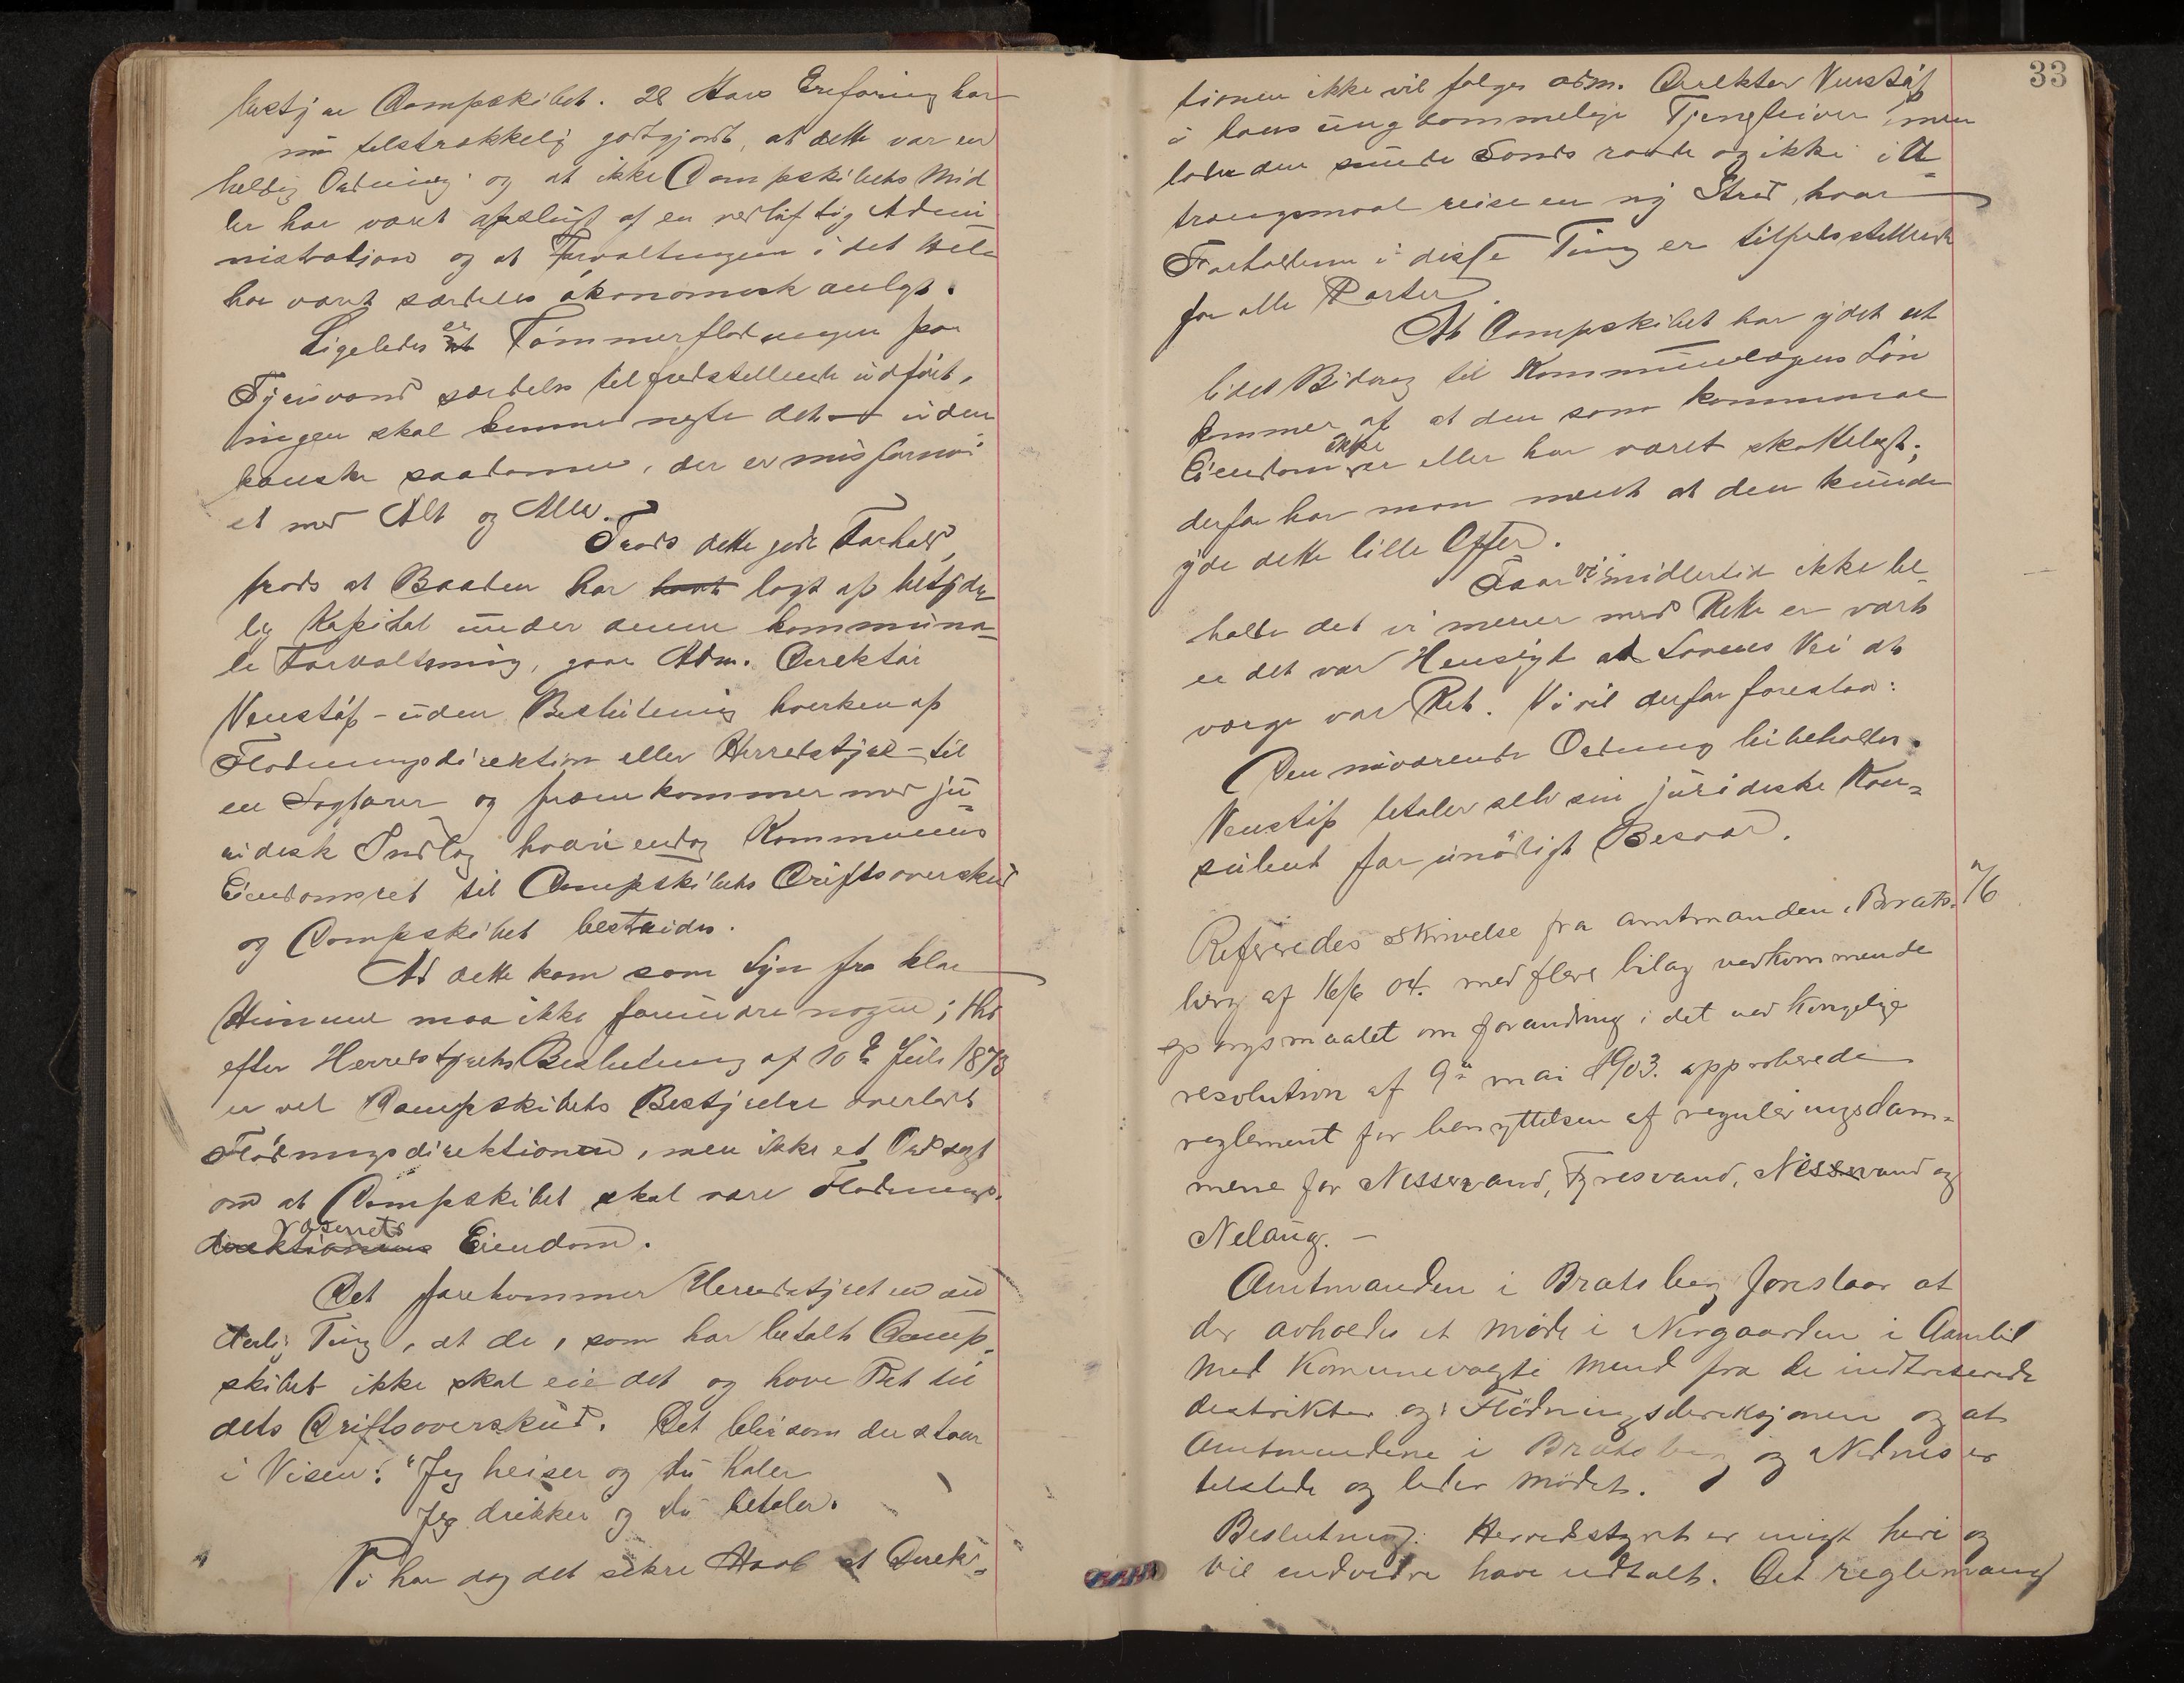 bestyre Dampskibet. 28 Aars Erfaring har
nu tilstrækkelig godtgjort, at dette var en
heldig Ordning og at ikke Dampskibets Mid
ler har været opslugt af en vedløftig Admi
nistration og at Forvaltningen i det Hele
har været særdeles økonomisk anlagt.
Ligeledes er Tømmerflødningen paa
Fyrisvand særdeles tilfredsstillende udført,
ingen skal kunne negte det — uden
kanske saadanne, der er misfornøi
et med Alt og Alle.
Trods dette gode Forhold,
trods at Baaden har havt lagt op betyde-
lig Kapital under denne kommuna-
le Forvaltning, gaar Adm. Direktør
Venstøp - uden Beslutning hverken af
Flødningsdirektion eller Herredstyre - til
en Sagfører og fremkommer med ju-
ridisk Indlæg hvori endog Kommunens
Eiendomsret til Dampskibets Driftsoverskud
og Dampskibet bestrides.
At dette kom som Lyn fra klar
Himmel maa ikke forundre nogen; thi
efter Herredstyrets Beslutning af 10de Juli 1873
er vel Dampskibets Bestyrelse overladt
Flødningsdirektionen, men ikke et Ord sagt
om at Dampskibet skal være Flødnings-
direktionens Væsenets Eiendom.
Det forekommer Herredstyret en un
derlig Ting, at de, som har betalt Damp-
skibet ikke skal eie det og have Ret til
dets Driftsoverskud. Det blir som der staar
i Visen: "Jeg heiser og du haler
Jeg drikker og du betaler.
Vi har dog det sikre Haab at Direk-
33
tionen ikke vil følge adm. Direktør Venstøp
i hans ungdommelige Tjenstiver, men
lade den sunde Sands raade og ikke i U-
trængsmaal reise en ny Strid, hvor
Forholdene i disse Ting er tilfredsstillende
for alle Parter.
At Dampskibet har ydet et
lidet Bidrag til Kommunelægens Løn
kommer af at den som kommunal
Eiendom ikke er eller har været skattelagt;
derfor har man ment at den kunde
yde dette lille Offer.
Faar vi imidlertid ikke be-
holde det vi mener med Rette er vort
er det vor Hensigt ad Lovens Vei at
værge vor Ret. Vi vil derfor foreslaa:
Den nuværende Ordning bibeholdes.
Venstøp betaler selv sin juridiske Kon-
sulent for unødigt Besvær.
Refereredes skrivelse fra amtmanden i Brats-
berg af 16/6 04. med flere bilag vedkommende
spørgsmaalet om forandring i det ved kongelige
resolution af 9de mai 1903. approberede
reglement for benyttelsen af reguleringsdam-
mene for Nisservand, Fyresvand, Nesservand og
Nelaug. —
Amtmanden i Bratsberg foreslaar at
der avholdes et møde i Nergaarden i Aamlid
med Komunevalgte Mænd fra de indtreserede
destrikter og Flødningsdereksjonen og at
Amtmændene i Bratsberg og Nednes er
tilstede og leder mødet.
Beslutning: Herredstyret er enigt heri og
vil endvidre have udtalt. Det reglemang